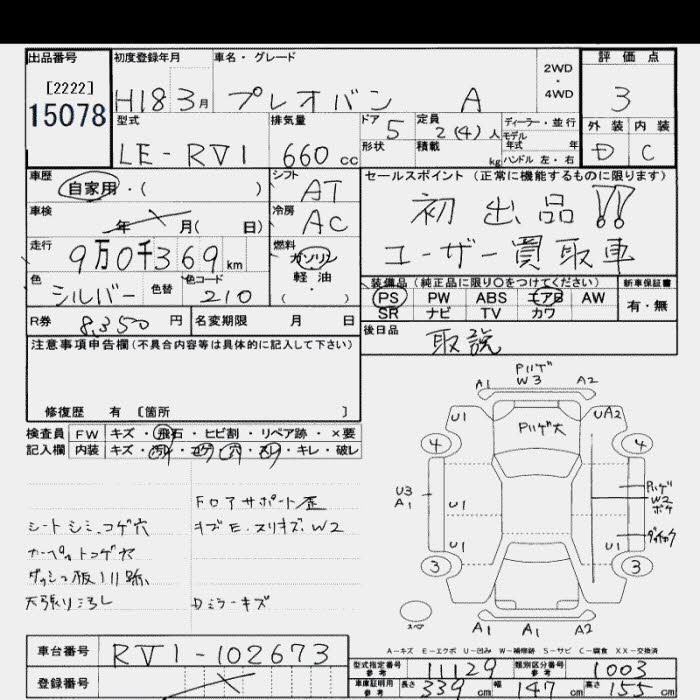 出品番号
[2222]
15078
初度登録年月
H18 3月
車名・グレード
プレオバン A
2WD
・
4WD
評価点
3
外装 内装
D C
型式
LE-RV1
排気量
660 cc
ドア
5
形状
定員
2(4)人
積載
kg
ディーラー・並行
モデル
年式 年
ハンドル 左・右
車歴
自家用・( )
シフト
AT
車検
年 月( 日)
冷房
AC
走行
9万0千369km
燃料
ガソリン
軽油
( ・ )
色
シルバー
色替
色コード
210
R券
8,350 円
名変期限 月 日
セールスポイント(正常に機能するものに限ります)
初出品!!
ユーザー買取車
装備品(純正品に限り○をつけてください)
PS PW ABS エアB AW
SR ナビ TV カワ
新車保証書
有・無
後日品
取説
注意事項申告欄(不具合内容等は具体的に記入して下さい)
修復歴 有 [箇所 ]
検査員
記入欄
FW キズ・飛石・ヒビ割・リペア跡・×要
内装 キズ・汚レ・コゲ・穴・スレ・キレ・破レ
シートシミ、コゲ穴
カーペットコゲ穴
天張りごみ
フロアサポート歪
キズE、スリキズ、W2
Dミラーキズ
Pハゲ
W3
A1 A2
U1 UA2
Pハゲ大
4 4
U3
A1
U1
Pハゲ
W2
ボケ
U1 U1
3 3
スペア
A1 A1 A2
A-キズ E-エクボ U-凹み W-補修跡 S-サビ C-腐食 XX-交換済
車台番号
RV1-102673
登録番号
型式指定番号
参考
11129
類別区分番号
参考
1003
車庫証明用
参考
長さ 339cm 幅 147cm 高さ 155cm